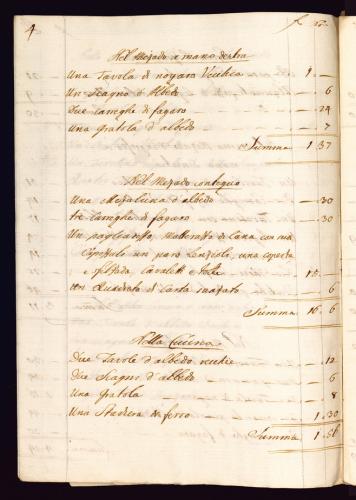 4
Nel Mezado a mano destra
Una Tavola di nogaro Vechia 1 —
Un Scagno d'Albeo — 6
Due Careghe di fagaro — 24
Una gratola d'albedo — 7
Summa 1 37
Nel Mezado contiguo
Una Mezaluna d'albedo — 30
tre Careghe di fagaro — 30
Un pagliarizzo, mattarazzo di Lana con un
Capezzale un paro Lenzioli, una coperta
Cavaletti e Tole 15 —
con quadretto di Carta — 6
Summa 16 6
Nella Cucina
Due Tavole d'albedo vechie — 12
Due Scagni d'albedo — 6
Una gratola — 8
Una Stadiera di ferro 1 30
Summa 1 56